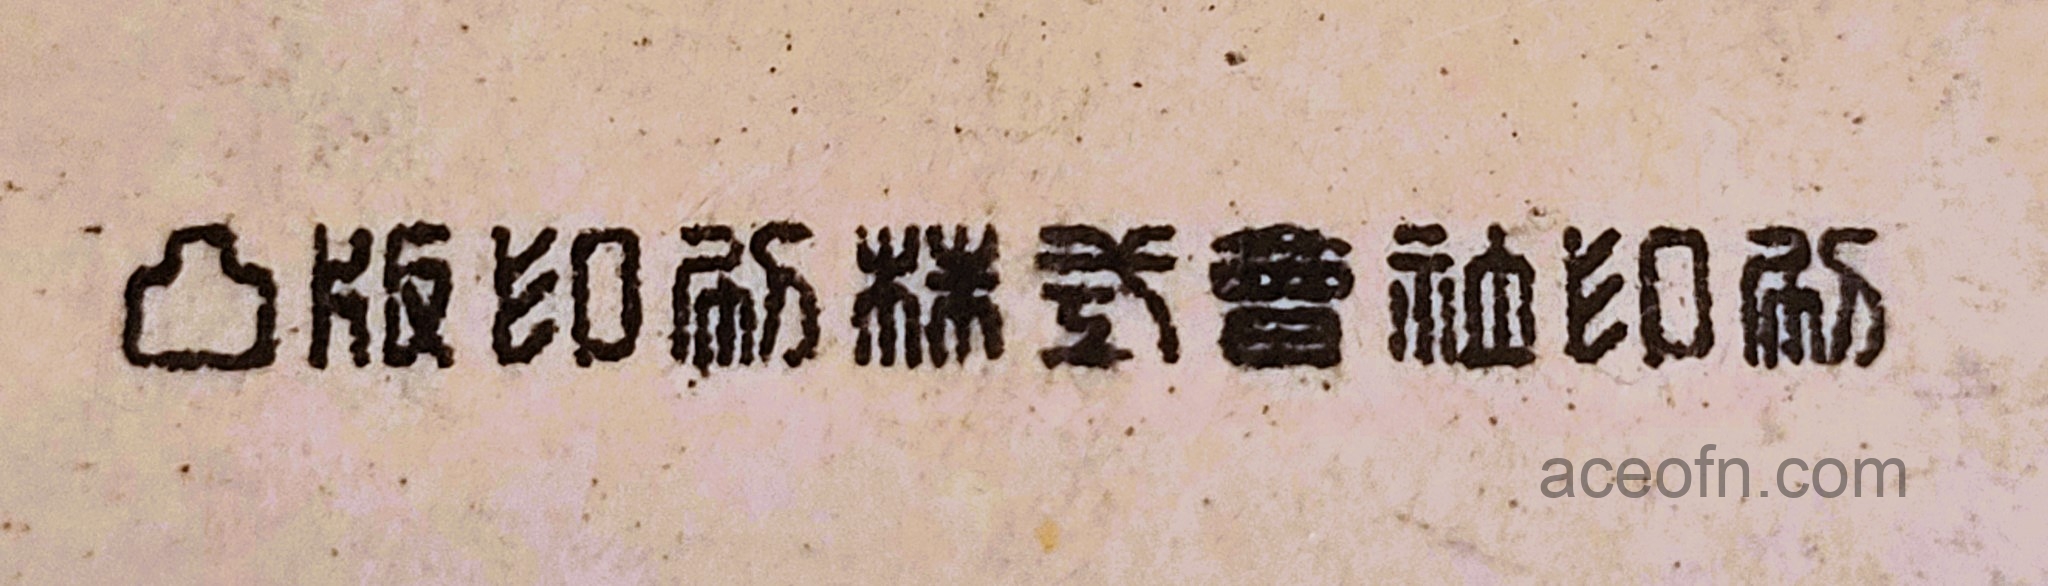 凸版印刷株式會社印刷
aceofn.com